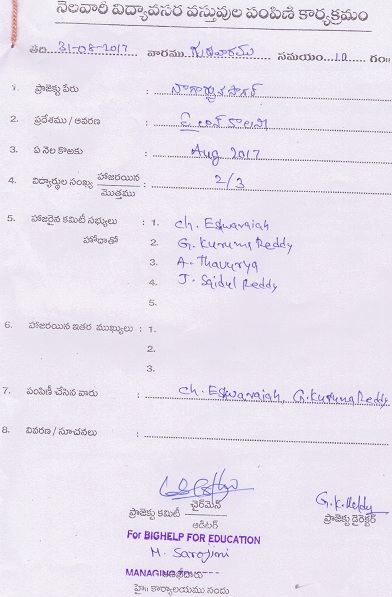 నెలవారీ విద్యావసర వస్తువుల పంపిణి కార్యక్రమం
తేది 31-08-2017 వారము గురువారము సమయం 10 గం॥
1. ప్రాజెక్టు పేరు : నాగార్జున సాగర్
2. ప్రదేశము / ఆవరణ : పైలాన్ కాలనీ
3. ఏ నెల కొఱకు : Aug 2017
4. విద్యార్థుల సంఖ్య హాజరయిన / మొత్తము : 2/3
5. హాజరైన కమిటీ సభ్యులు : 1. Ch. Eswaraiah
హోదాతో 2. G. Kuruma Reddy
3. A. Thavurya
4. J. Saidul Reddy
5.
6. హాజరయిన ఇతర ముఖ్యులు : 1.
2.
3.
7. పంపిణీ చేసిన వారు : Ch. Eswaraiah, G. Kuruma Reddy
8. వివరణ / సూచనలు :
ప్రాజెక్టు కమిటీ చైర్‌మెన్ / ఆడిటర్
G.K.Reddy
ప్రాజెక్టు డైరెక్టర్
For BIGHELP FOR EDUCATION
M. Sarojini
MANAGING
హై॥ కార్యాలయము నందు